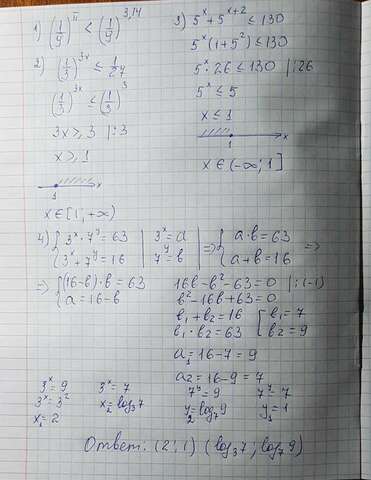 1) (1/9)^π < (1/9)^3,14
2) (1/3)^3x ≤ 1/27
(1/3)^3x ≤ (1/3)^3
3x ≥ 3 |:3
x ≥ 1
1 x
x ∈ [1; +∞)
3) 5^x + 5^(x+2) ≤ 130
5^x (1+5^2) ≤ 130
5^x · 26 ≤ 130 |:26
5^x ≤ 5
x ≤ 1
1 x
x ∈ (-∞; 1]
4) { 3^x · 7^y = 63 | 3^x = a => { a·b = 63 =>
{ 3^x + 7^y = 16 | 7^y = b { a+b = 16
=> { (16-b)·b = 63
{ a = 16-b
16b - b^2 - 63 = 0 |:(-1)
b^2 - 16b + 63 = 0
b₁ + b₂ = 16 [ b₁ = 7
b₁ · b₂ = 63 [ b₂ = 9
a₁ = 16-7 = 9
a₂ = 16-9 = 7
3^x = 9 3^x = 7 7^y = 9 7^y = 7
3^x = 3^2 x₂ = log₃7 y₂ = log₇9 y₁ = 1
x₁ = 2
Ответ: (2; 1) (log₃7; log₇9)